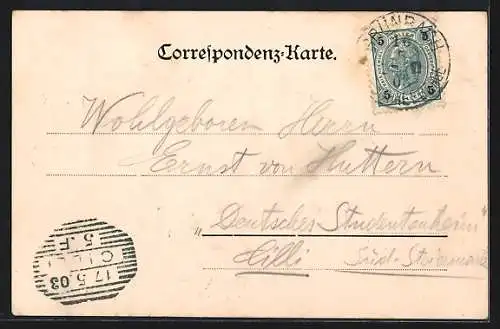 Correspondenz-Karte.
5 5
5 5
Wohlgeboren Herrn
Ernst von Huttern
"Deutsches Studentenheim"
Cilli Süd-Steiermark
17.5.03
5.F